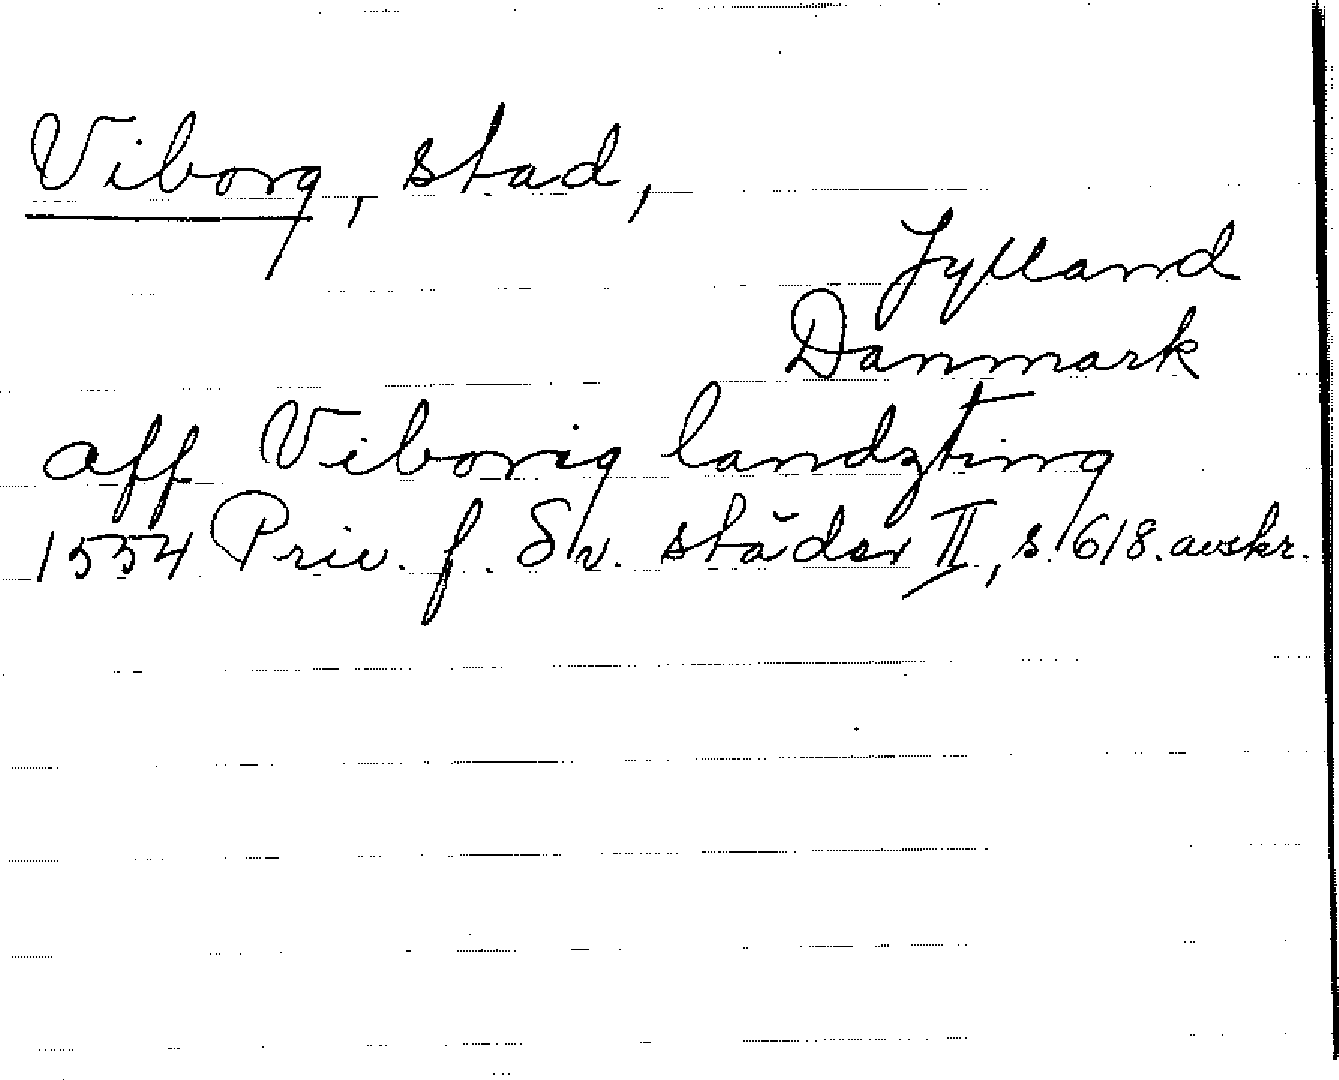 Viborg, stad,
Jylland
Danmark
aff Viborig landzting
1554 Priv. f. Sv. städer II, s. 618. avskr.